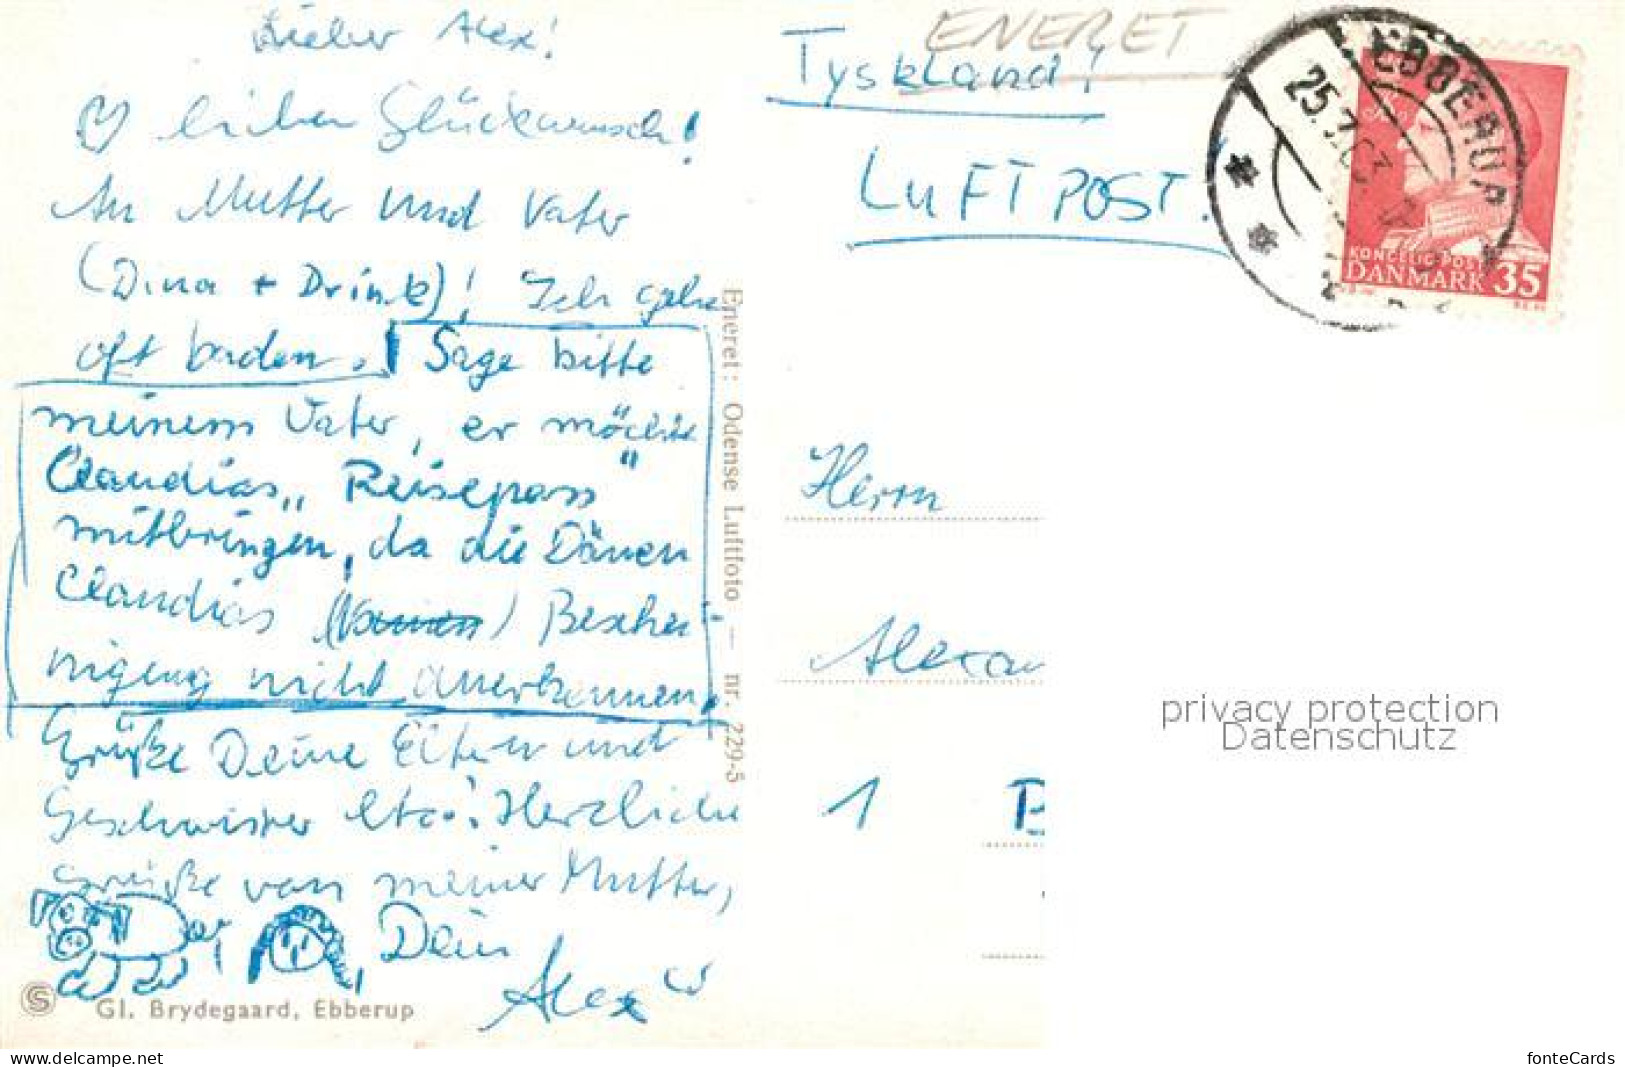 Lieber Alex!
lieben Glückwunsch!
An Mutter und Vater
(Dina + Drink)! Ich gehe
oft baden. Sage bitte
meinem Vater, er möchte
Claudias „Reisepass"
mitbringen, da die Dänen
Claudias Beschei-
nigung nicht anerkennen.
Grüße Deine Eltern und
Geschwister etc.! Herzliche
Grüße von meiner Mutter,
Dein
Alex
Gl. Brydegaard, Ebberup
Eneret: Odense Luftfoto — nr. 229-5
ENERET
Tyskland!
LUFTPOST!
EBBERUP
25.7.63
KONGELIG POST
DANMARK 35
Herrn
Alexan
1 B
privacy protection
Datenschutz
www.delcampe.net
fonteCards